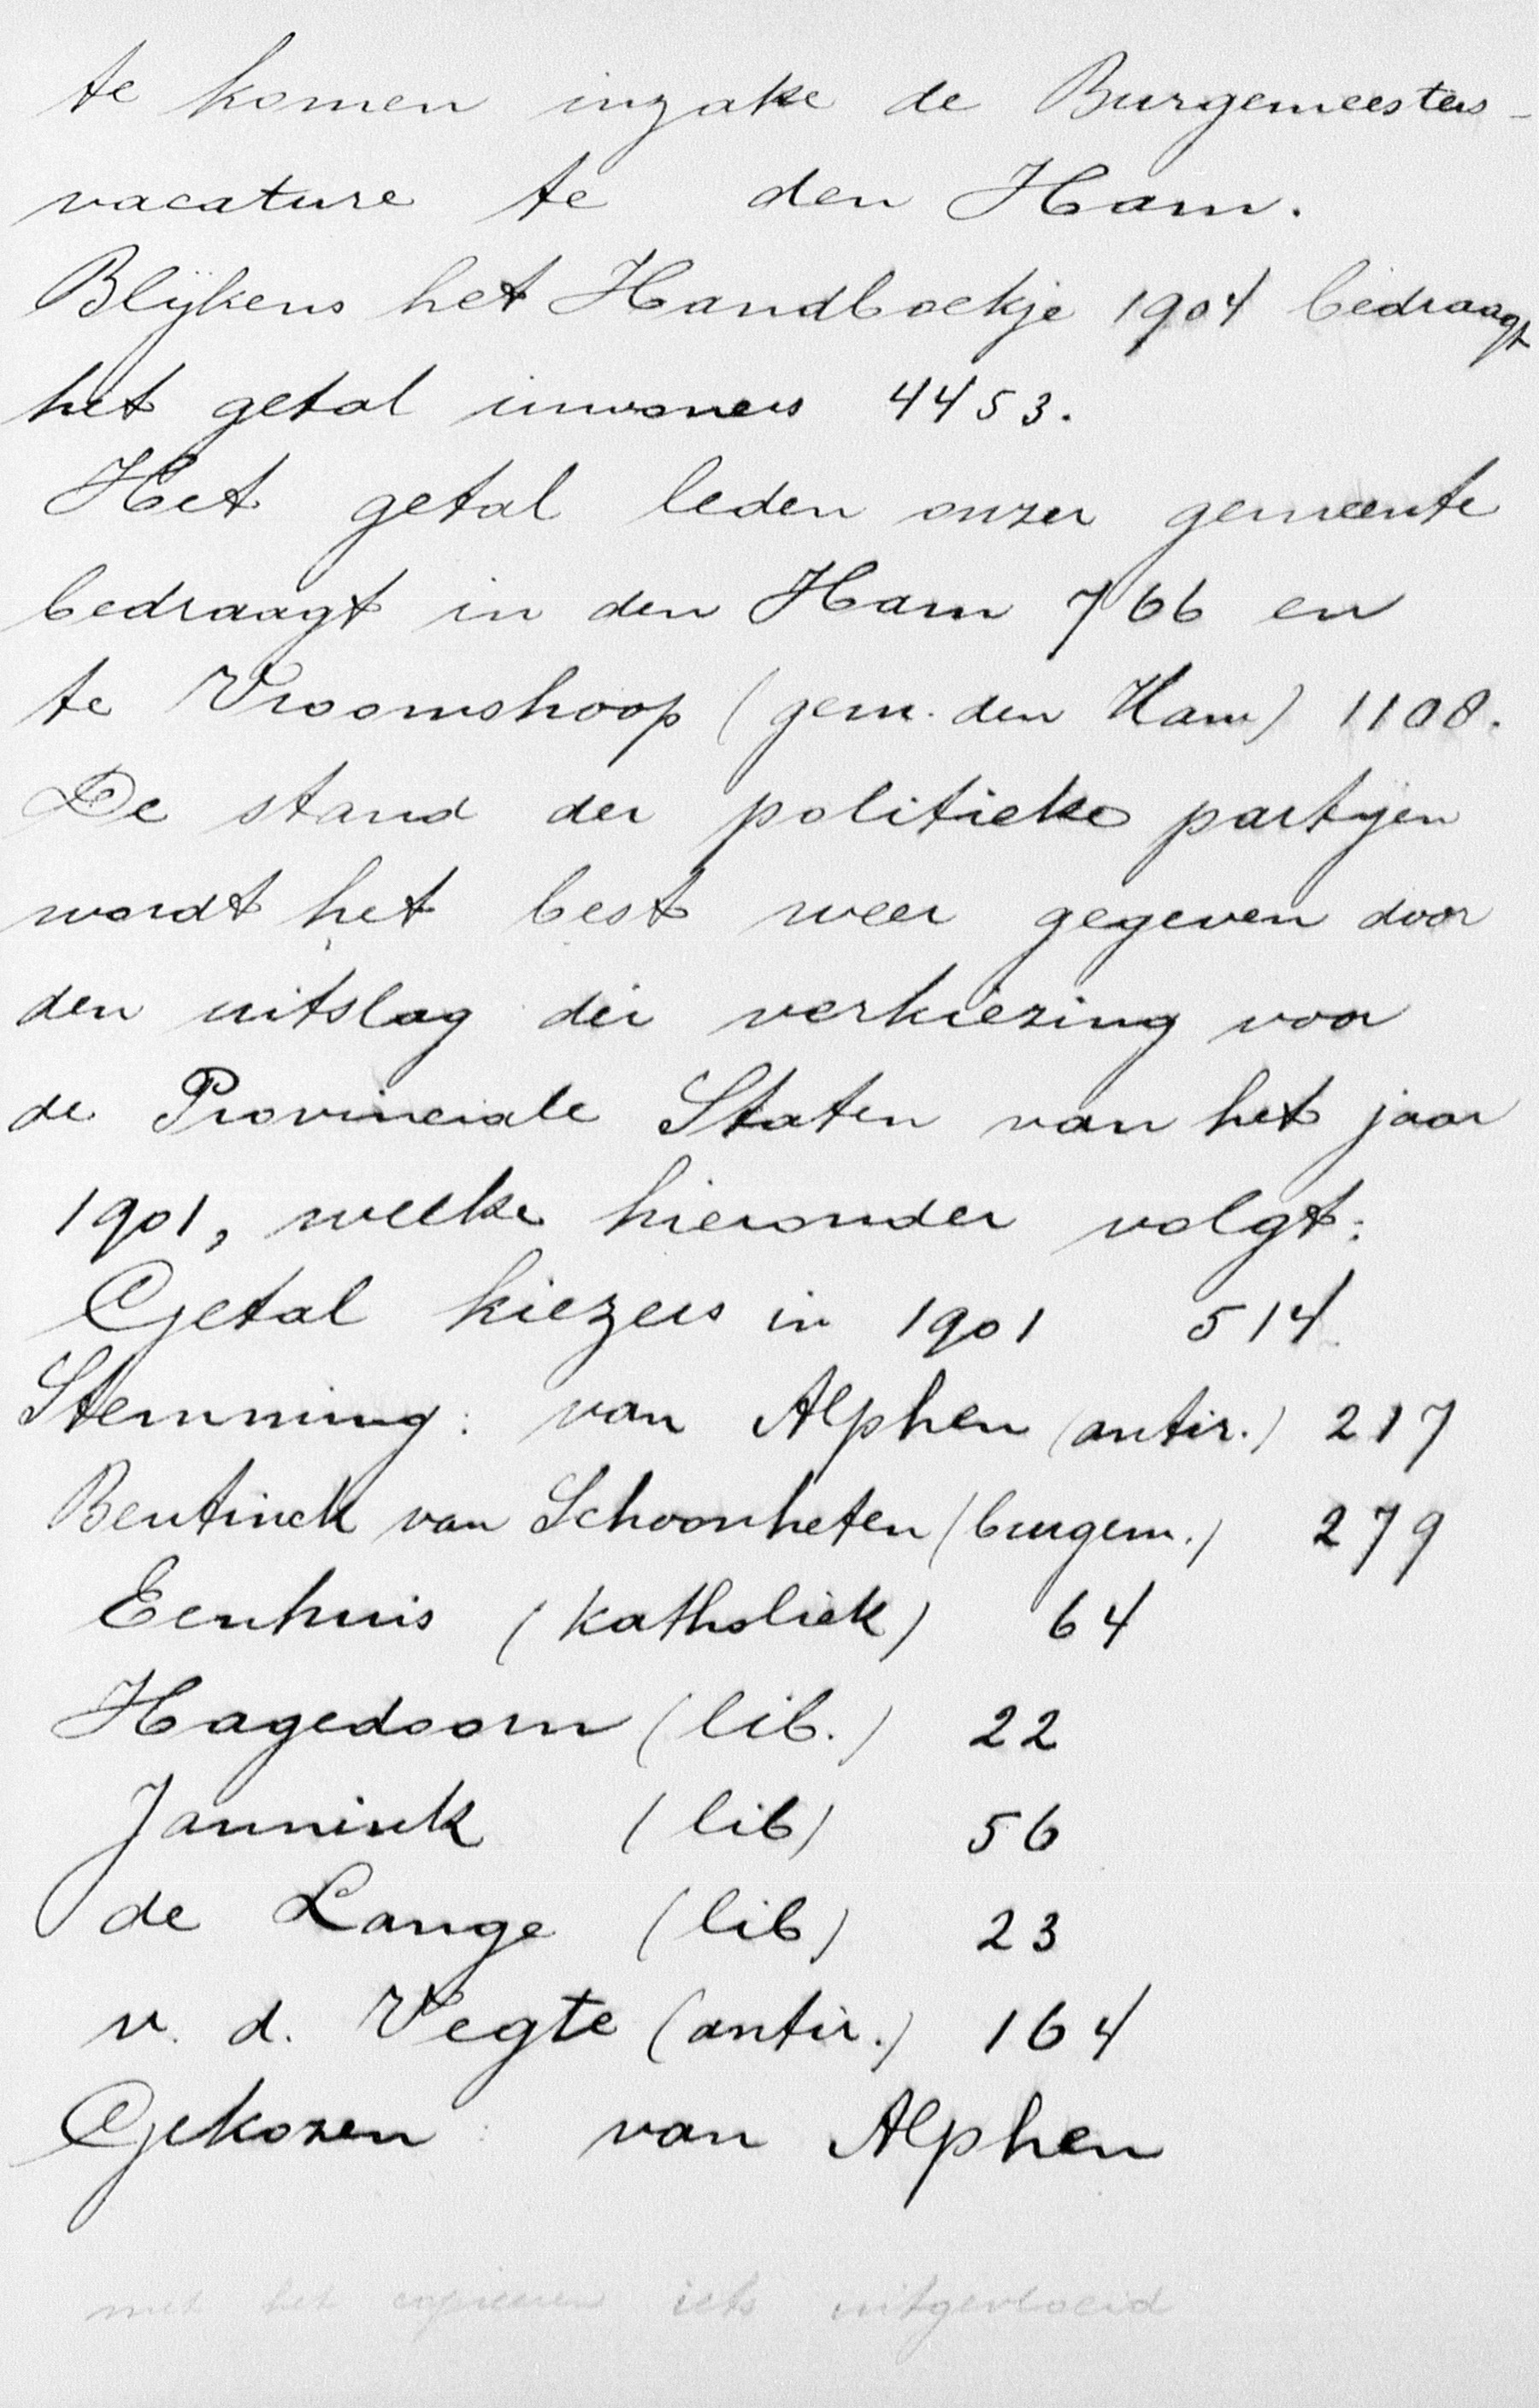 te komen inzake de Burgemeesters-
vacature te den Ham.
Blijkens het Handboekje 1904 bedraagt
het getal inwoners 4453.
Het getal leden onzer gemeente
bedraagt in den Ham 766 en
te Vroomshoop (gem. den Ham) 1108.
De stand der politieke partijen
wordt het best weer gegeven door
den uitslag der verkiezing voor
de Provinciale Staten van het jaar
1901, welke hieronder volgt:
Getal kiezers in 1901 514
Stemming: van Alphen (antir.) 217
Bentinck van Schoonheten (burgem.) 279
Eenhuis (katholiek) 64
Hagedoorn (lib.) 22
Jannink (lib) 56
de Lange (lib) 23
v. d. Vegte (antir.) 164
Gekozen: van Alphen
met het copieeren iets uitgevloeid